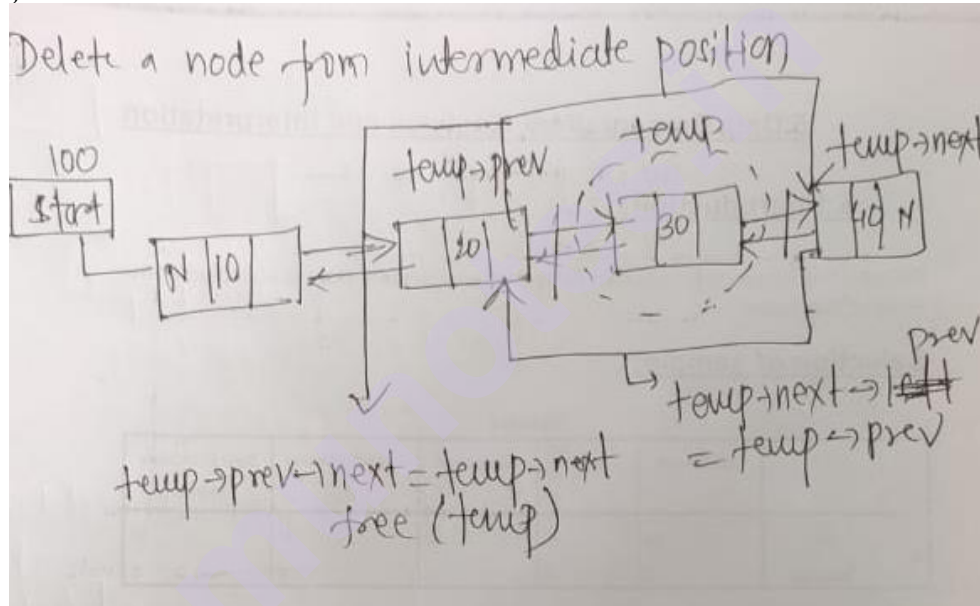 Delete a node from intermediate position
100
Start
temp→prev
temp
temp→next
N 10
20
30
40 N
prev
temp→next→
= temp→prev
temp→prev→next = temp→next
free (temp)